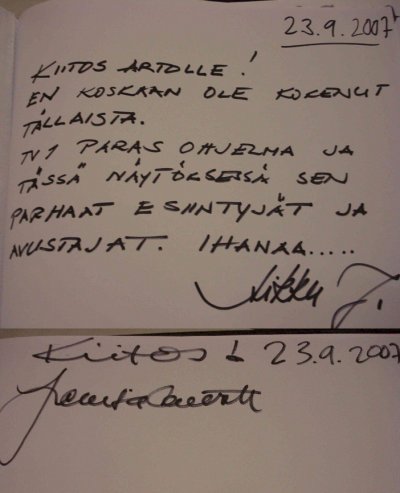 23.9.2007
KIITOS ARTOLLE!
EN KOSKAAN OLE KOKENUT
TÄLLAISTA.
TV1 PARAS OHJELMA JA
TÄSSÄ NÄYTÖKSESSÄ SEN
PARHAAT ESIINTYJÄT JA
AVUSTAJAT. IHANAA.....
Kiitos! 23.9.2007